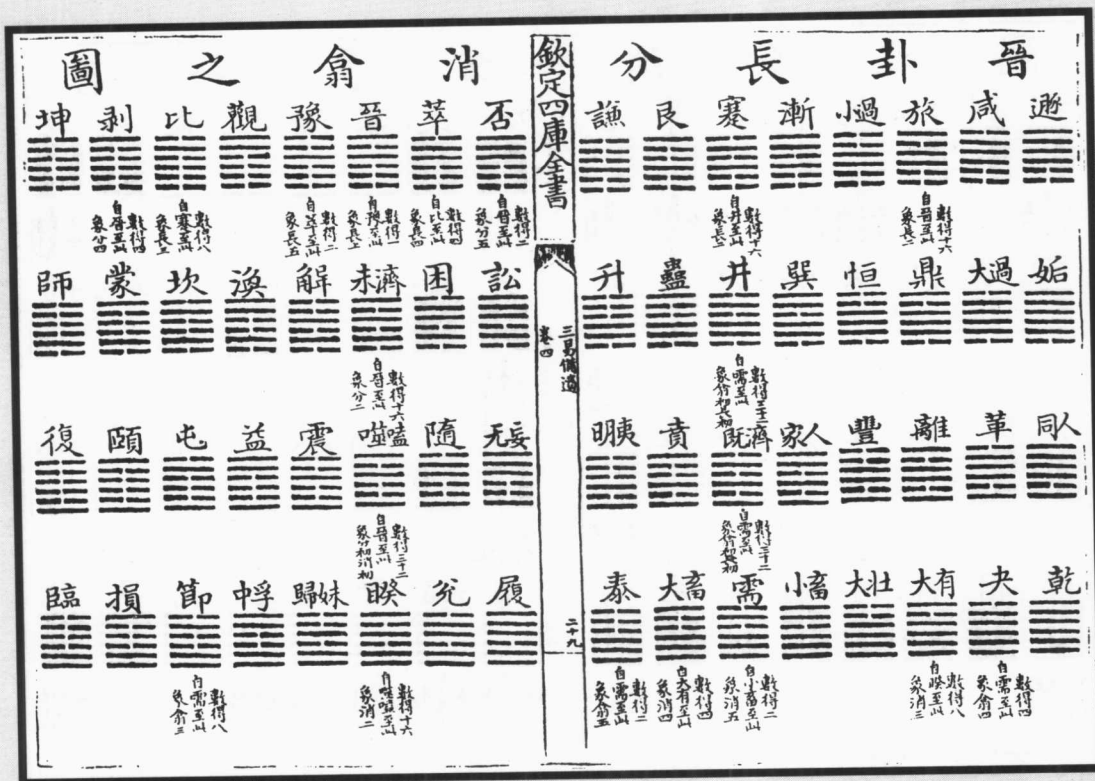 晉卦長分
遯 咸 旅 小過 漸 蹇 艮 謙
數得十六
自晉至此
象長二
數得十六
自井至此
象長二
姤 大過 鼎 恒 巽 井 蠱 升
數得三十二
自需至此
象翕初長初
同人 革 離 豐 家人 既濟 賁 明夷
數得三十二
自需至此
象翕初長初
乾 夬 大有 大壯 小畜 需 大畜 泰
數得四
自需至此
象翕四
數得八
自睽至此
象消三
數得二
自小畜至此
象消五
數得四
自大有至此
象消四
數得二
自需至此
象翕五
欽定四庫全書
三易備遺
卷四
二十九
消翕之圖
否 萃 晉 豫 觀 比 剥 坤
數得二
自晉至此
象分五
數得四
自比至此
象長四
數得一
自豫至此
象長上
數得二
自萃至此
象長五
數得八
自蹇至此
數得四
自晉至此
象分四
訟 困 未濟 解 渙 坎 蒙 師
數得十六
自晉至此
象分二
无妄 隨 噬嗑 震 益 屯 頤 復
數得三十二
自晉至此
象分初消初
履 兌 睽 歸妹 中孚 節 損 臨
數得十六
自噬嗑至此
象消二
數得八
自需至此
象翕三